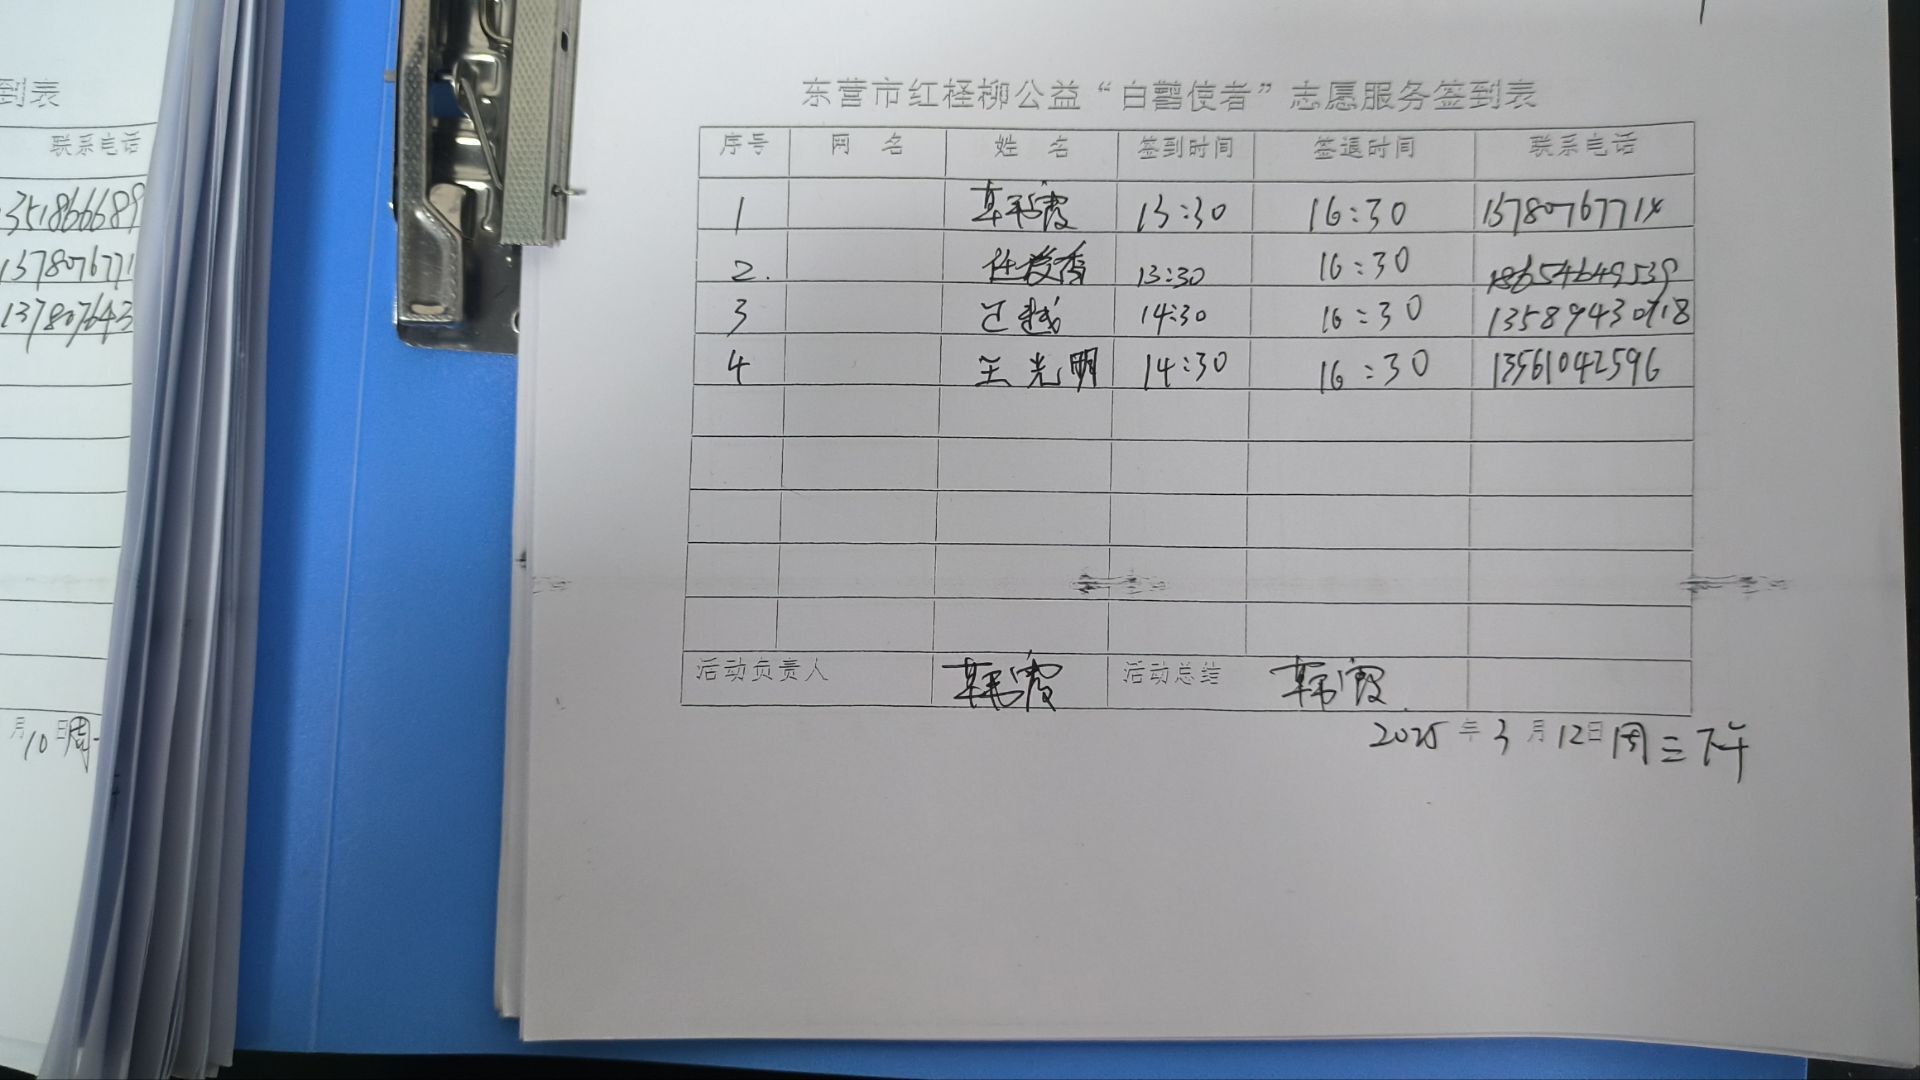 到表
联系电话
1378076771
137807643
月10日周一
东营市红柽柳公益“白鹳使者”志愿服务签到表
序号 网 名 姓 名 签到时间 签退时间 联系电话
1 韩霞 13:30 16:30
2. 13:30 16:30 18654649539
3 14:30 16:30
4 王光明 14:30 16:30 13561042596
活动负责人 韩霞 活动总结 韩霞
2025年3月12日周三下午